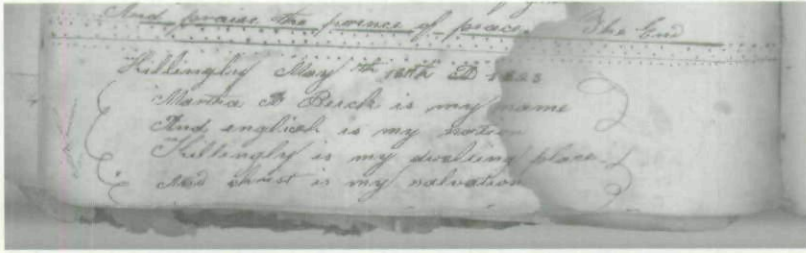 And praise the prince of peace. The End
Killingly May th 18th AD 1823
B Besck is my name
And english is my nation
Killingly is my dwelling place
And christ is my salvation